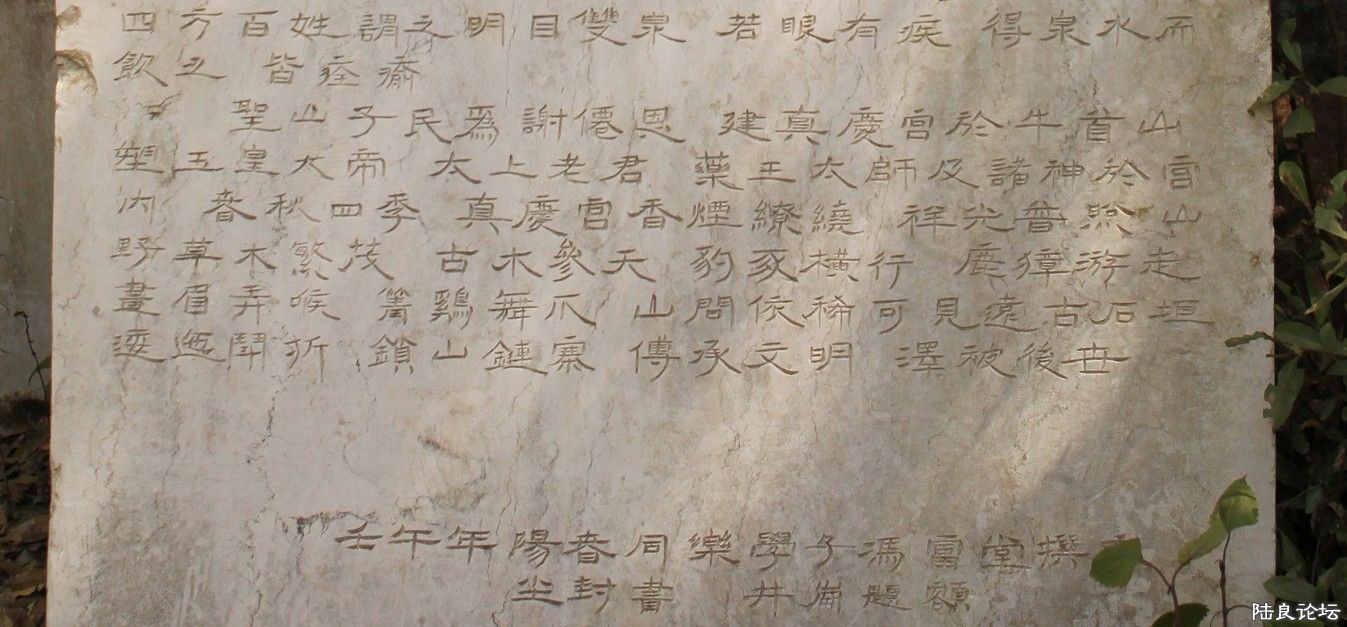 四方百姓謂之明目雙泉 若眼有疾 得泉水而
飲之 皆痊癒
聖山子民爲謝僊恩 建真慶宮於牛首山
塑玉皇大帝 太上老君 藥王太師及諸神於宮
内 春秋四季 真慶宮香煙繚繞 祥光普照 山
野草木繁茂 古木參天 豹豕橫行 鹿獐游走
畫眉弄喉 箐鷄舞爪 山間依稀可見遠古石垣
逶迤鬥折 鎖山鏈寨 傳承文明 澤被後世
壬午年陽春同樂學子馮雷堂撰
尘封書 井崗題額
陆良论坛